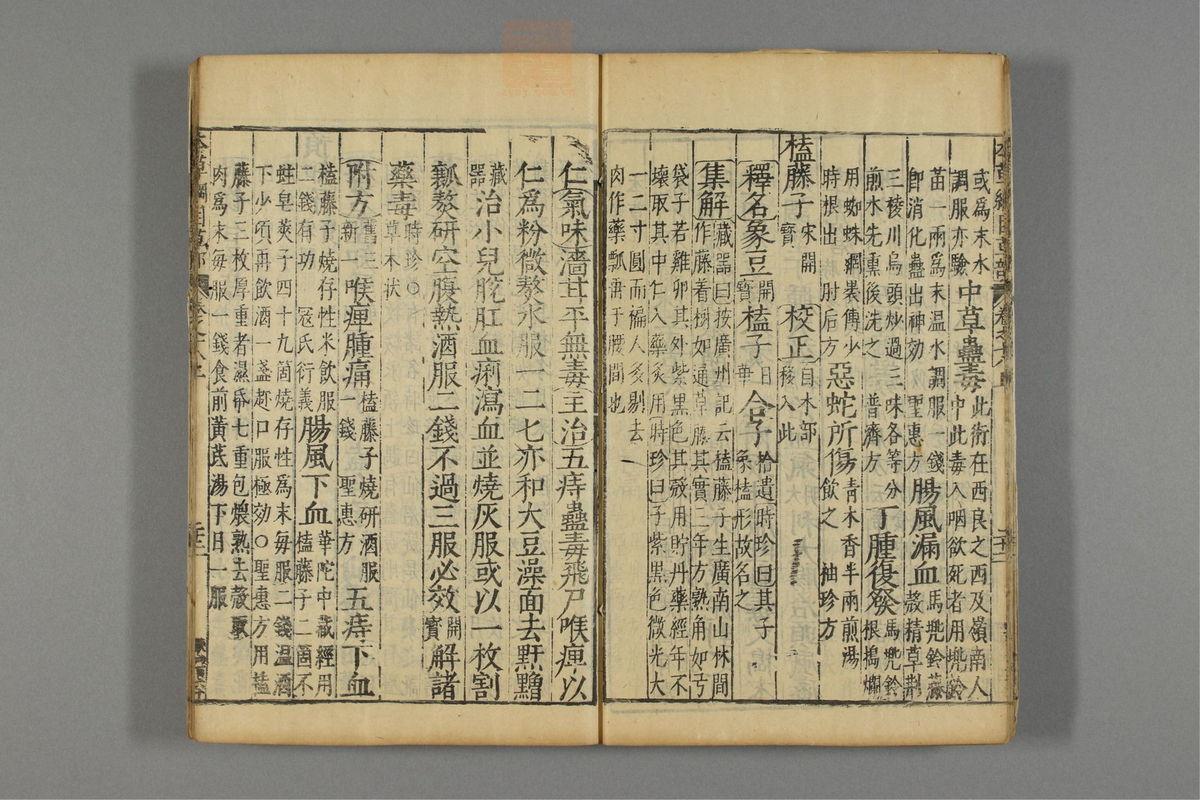 或為末水調服亦驗中草蠱毒此術在西良之西及嶺南人中此毒入咽欲死者用兜鈴
苗一兩為末温水調服一錢即消化蠱出神効聖惠方腸風漏血馬兜鈴藤穀精草荆
三棱川烏頭炒過三味各等分煎水先熏後洗之普濟方丁腫復發馬兜鈴根搗爛
用蜘蛛網裹傅少時根出肘后方惡蛇所傷青木香半兩煎湯飲之袖珍方
榼藤子宋開寶校正自木部移入此
釋名象豆開寶榼子日華合子拾遺時珍曰其子象榼形故名之
集解藏器曰按廣州記云榼藤子生廣南山林間作藤着樹如通草藤其實三年方熟角如弓
袋子若雞卵其外紫黑色其殼用貯丹藥經年不壞取其中仁入藥炙用時珍曰子紫黑色微光大
一二寸圓而褊人多剔去肉作藥瓢垂于腰間也
仁氣味濇甘平無毒主治五痔蠱毒飛尸喉痺以
仁為粉微熬水服一二匕亦和大豆澡面去䵟黯
藏器治小兒脫肛血痢瀉血並燒灰服或以一枚割
瓤熬研空腹熱酒服二錢不過三服必效開寶解諸
藥毒時珍○草木狀
附方舊三新一喉痺腫痛榼藤子燒研酒服一錢聖惠方五痔下血
榼藤子燒存性米飲服二錢有功寇氏衍義腸風下血華陀中藏經用榼藤子二箇不
蛀皂莢子四十九箇燒存性為末每服二錢温酒下少頃再飲酒一盞趂口服極効○聖惠方用榼
藤子三枚厚重者濕紙七重包煨熟去殼取肉為末每服一錢食前黃芪湯下日一服